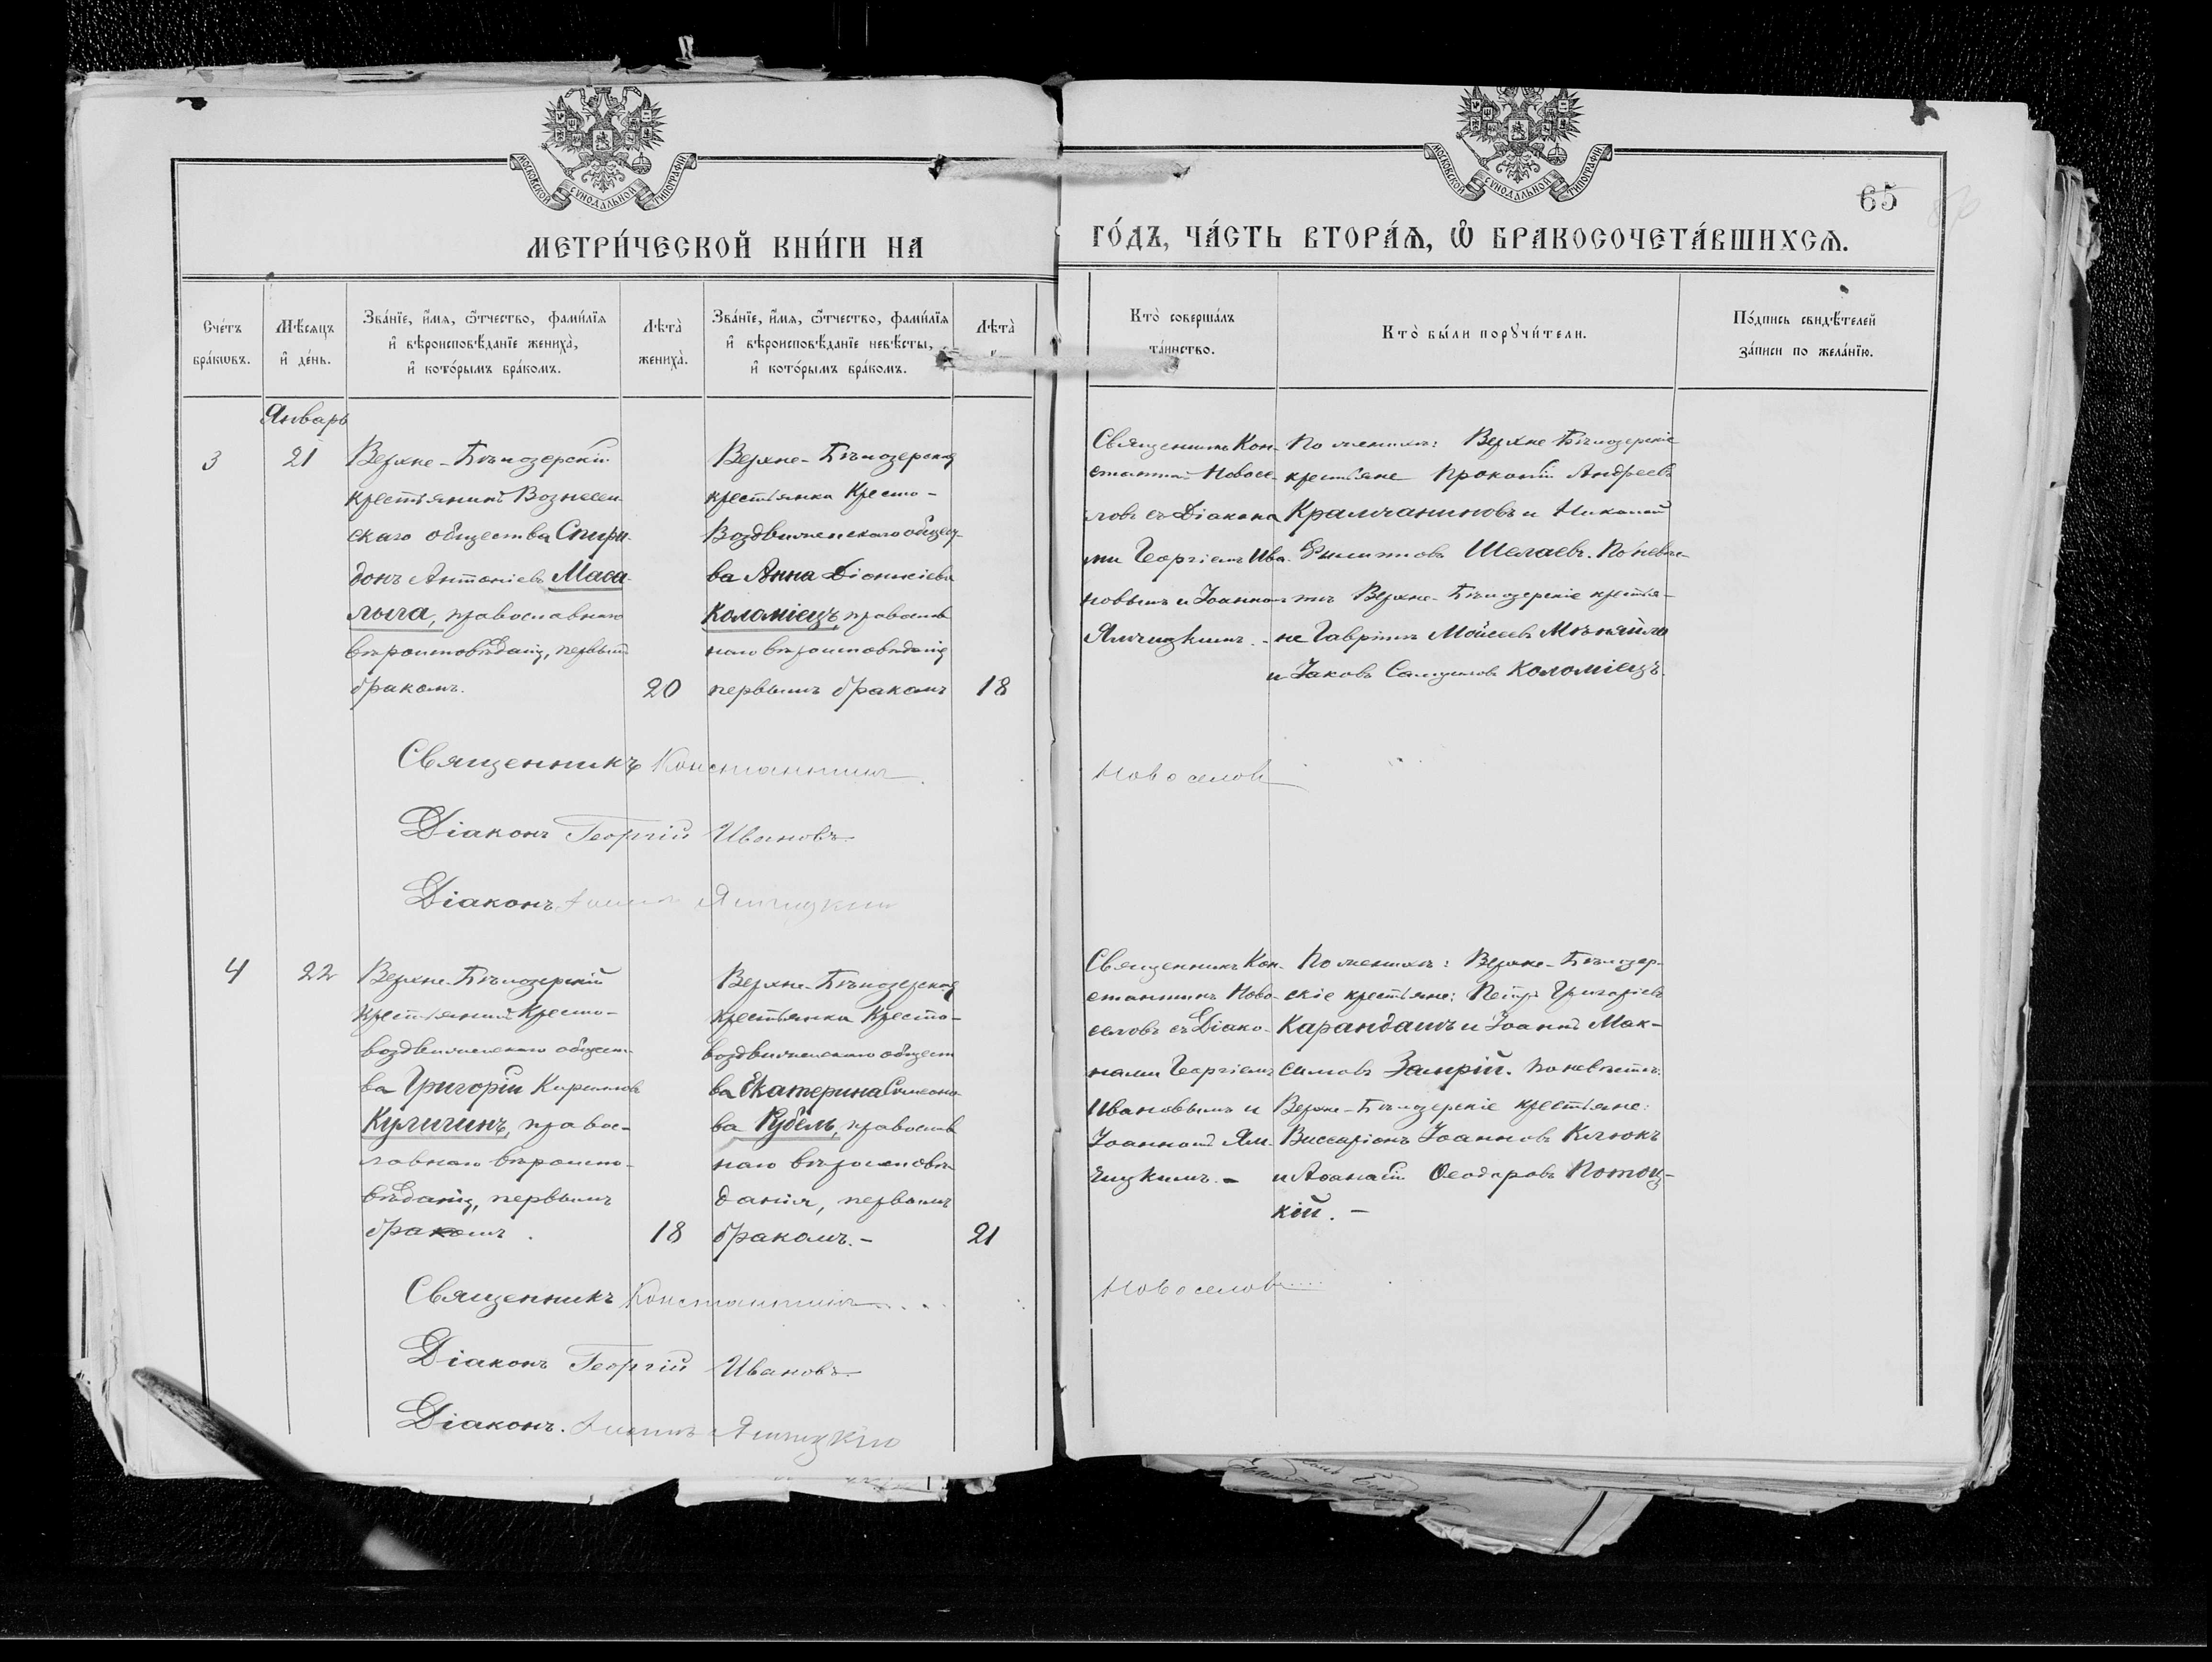 МОСКОВСКОЙ СѴНОДАЛЬНОЙ ТИПОГРАФІИ
МЕТРИ́ЧЕСКОЙ КНИ́ГИ НА
Сче́тъ бра́кѡвъ.
Мѣ́сяцъ и҆ де́нь.
Зва́нїе, и҆́мѧ, ѻ҆́тчество, фами́лїѧ и҆ вѣроисповѣ́данїе жениха̀, и҆ кото́рымъ бра́комъ.
Лѣта̀ жениха̀.
Зва́нїе, и҆́мѧ, ѻ҆́тчество, фами́лїѧ и҆ вѣроисповѣ́данїе невѣ́сты, и҆ кото́рымъ бра́комъ.
Лѣта̀
Январь
3
21
Верхне-Бѣлозерскій
крестьянинъ Вознесен-
скаго общества Спири-
донъ Антоніевъ Маса-
лыга, православнаго
вѣроисповѣданія, первымъ
бракомъ.
20
Верхне-Бѣлозерская
крестьянка Кресто-
Воздвиженскаго общест-
ва Анна Діонисіева
Коломіецъ, православ
наго вѣроисповѣданія
первымъ бракомъ
18
Священникъ Константинъ
Діаконъ Георгій Ивановъ
Діаконъ Іоаннъ Ямчицкій
4
22
Верхне-Бѣлозерскій
крестьянинъ Кресто-
воздвиженскаго общест-
ва Григорій Кириловъ
Кулигинъ, правос-
лавнаго вѣроиспо-
вѣданія, первымъ
бракомъ.
18
Верхне-Бѣлозерская
крестьянка Кресто-
воздвиженскаго общест
ва Екатерина Симеоно-
ва Рубель, православ
наго вѣроисповѣ
данія, первымъ
бракомъ.-
21
Священникъ Константинъ
Діаконъ Георгій Ивановъ
Діаконъ. Іоаннъ Ямчицкій
МОСКОВСКОЙ СѴНОДАЛЬНОЙ ТИПОГРАФІИ
65
ГО́ДЪ, ЧА́СТЬ ВТОРА́Ѧ, Ѡ҆ БРАКОСОЧЕТА́ВШИХСѦ.
Кто̀ соверша́лъ та́инство.
Кто̀ бы́ли порꙋчи́тели.
По́дпись свидѣ́телей за́писи по жела́нїю.
Священникъ Кон-
стантинъ Новосе-
ловъ съ Діакона
ми Георгіемъ Ива-
новымъ и Іоанномъ
Ямчицкимъ. -
По женихѣ: Верхне Бѣлозерскіе
крестьяне Прокопій Андреевъ
Крамчаниновъ и Николай
Филиповъ Шелаевъ. По невѣс-
тѣ Верхне-Бѣлозерскіе крестья-
не Гавріилъ Мойсеевъ Мѣняйло
и Іаковъ Самуиловъ Коломіецъ.
Новоселовъ
Священникъ Кон-
стантинъ Ново-
селовъ съ Діако-
нами Георгіемъ
Ивановымъ и
Іоанномъ Ям-
чицкимъ. -
По женихѣ: Верхне-Бѣлозер-
скіе крестьяне: Петръ Григоріевъ
Карандашъ и Іоаннъ Мак-
симовъ Замрій. По невѣстѣ:
Верхне-Бѣлозерскіе крестьяне:
Виссаріонъ Іоанновъ Клюкъ
и Аѳанасій Ѳеодоровъ Потоц-
кій. -
Новоселовъ